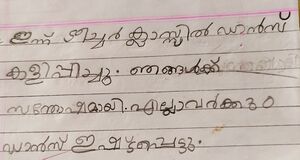 ഇന്ന് ടീച്ചർ ക്ലാസ്സിൽ ഡാൻസ്
കളിപ്പിച്ചു. ഞങ്ങൾക്ക്
സന്തോഷമായി. എല്ലാവർക്കും
ഡാൻസ് ഇഷ്ടപ്പെട്ടു.